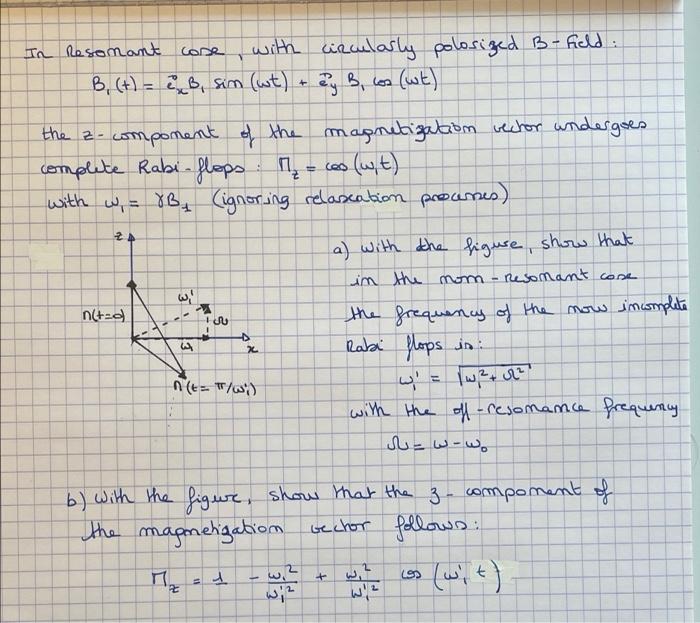 In Resonant case, with circularly polarized B-field:
B₁(t) = e⃗ₓB₁ sin(ωt) + e⃗ᵧ B₁ cos(ωt)
the z-component of the magnetization vector undergoes
complete Rabi-flops: M_z = cos(ω₁t)
with ω₁ = γB₁ (ignoring relaxation processes)
z
M(t=0)
ω₁'
Ω
ω₁
x
M(t=π/ω₁')
a) With the figure, show that
in the non-resonant case
the frequency of the now incomplete
Rabi flops is:
ω₁' = √(ω₁² + Ω²)
with the off-resonance frequency
Ω = ω - ω₀
b) With the figure, show that the z-component of
the magnetization vector follows:
M_z = 1 - ω₁²/ω₁'² + ω₁²/ω₁'² cos(ω₁' t)